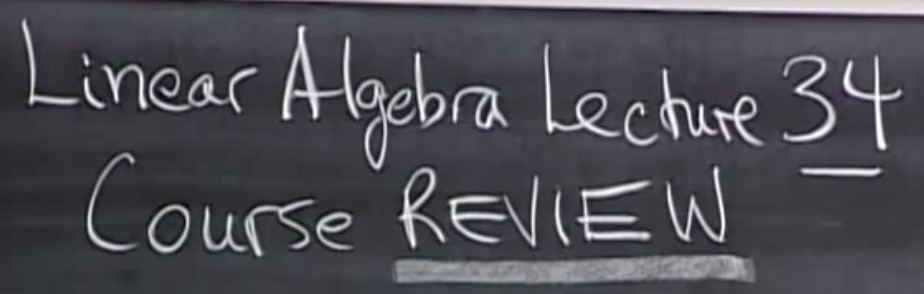 Linear Algebra Lecture 34
Course REVIEW